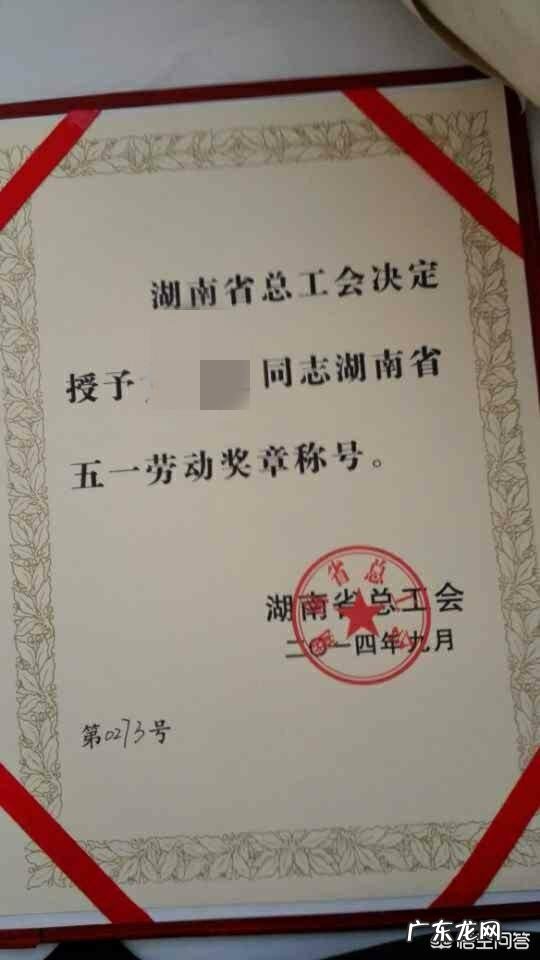 湖南省总工会决定
授予 同志湖南省
五一劳动奖章称号。
湖南省总工会
二〇一四年九月
第0273号
广东龙网
悟空问答